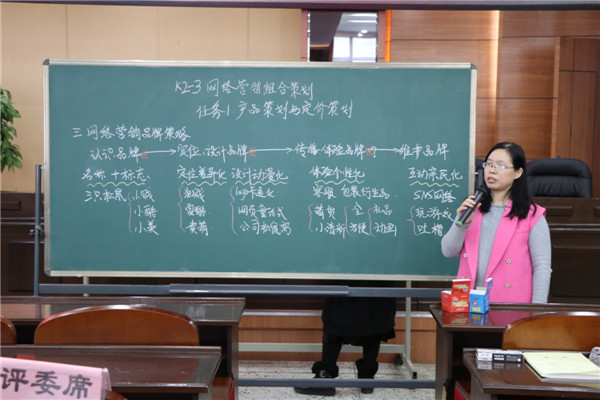 K2-3 网络营销组合策划
任务1 产品策划与定价策划
三 网络营销品牌策略
认识品牌 → 定位、设计品牌 → 传播、体验品牌 → 维护品牌
名称 + 标志 定位差异化 设计动漫化 体验个性化 互动亲民化
三只松鼠 小贱 客服 包装 衍生品 SNS网络
小酷 网页 式 萌 全 礼品 玩游戏
小美 卖萌 公司松鼠窝 小清新 方便 动画 吐槽
评委席